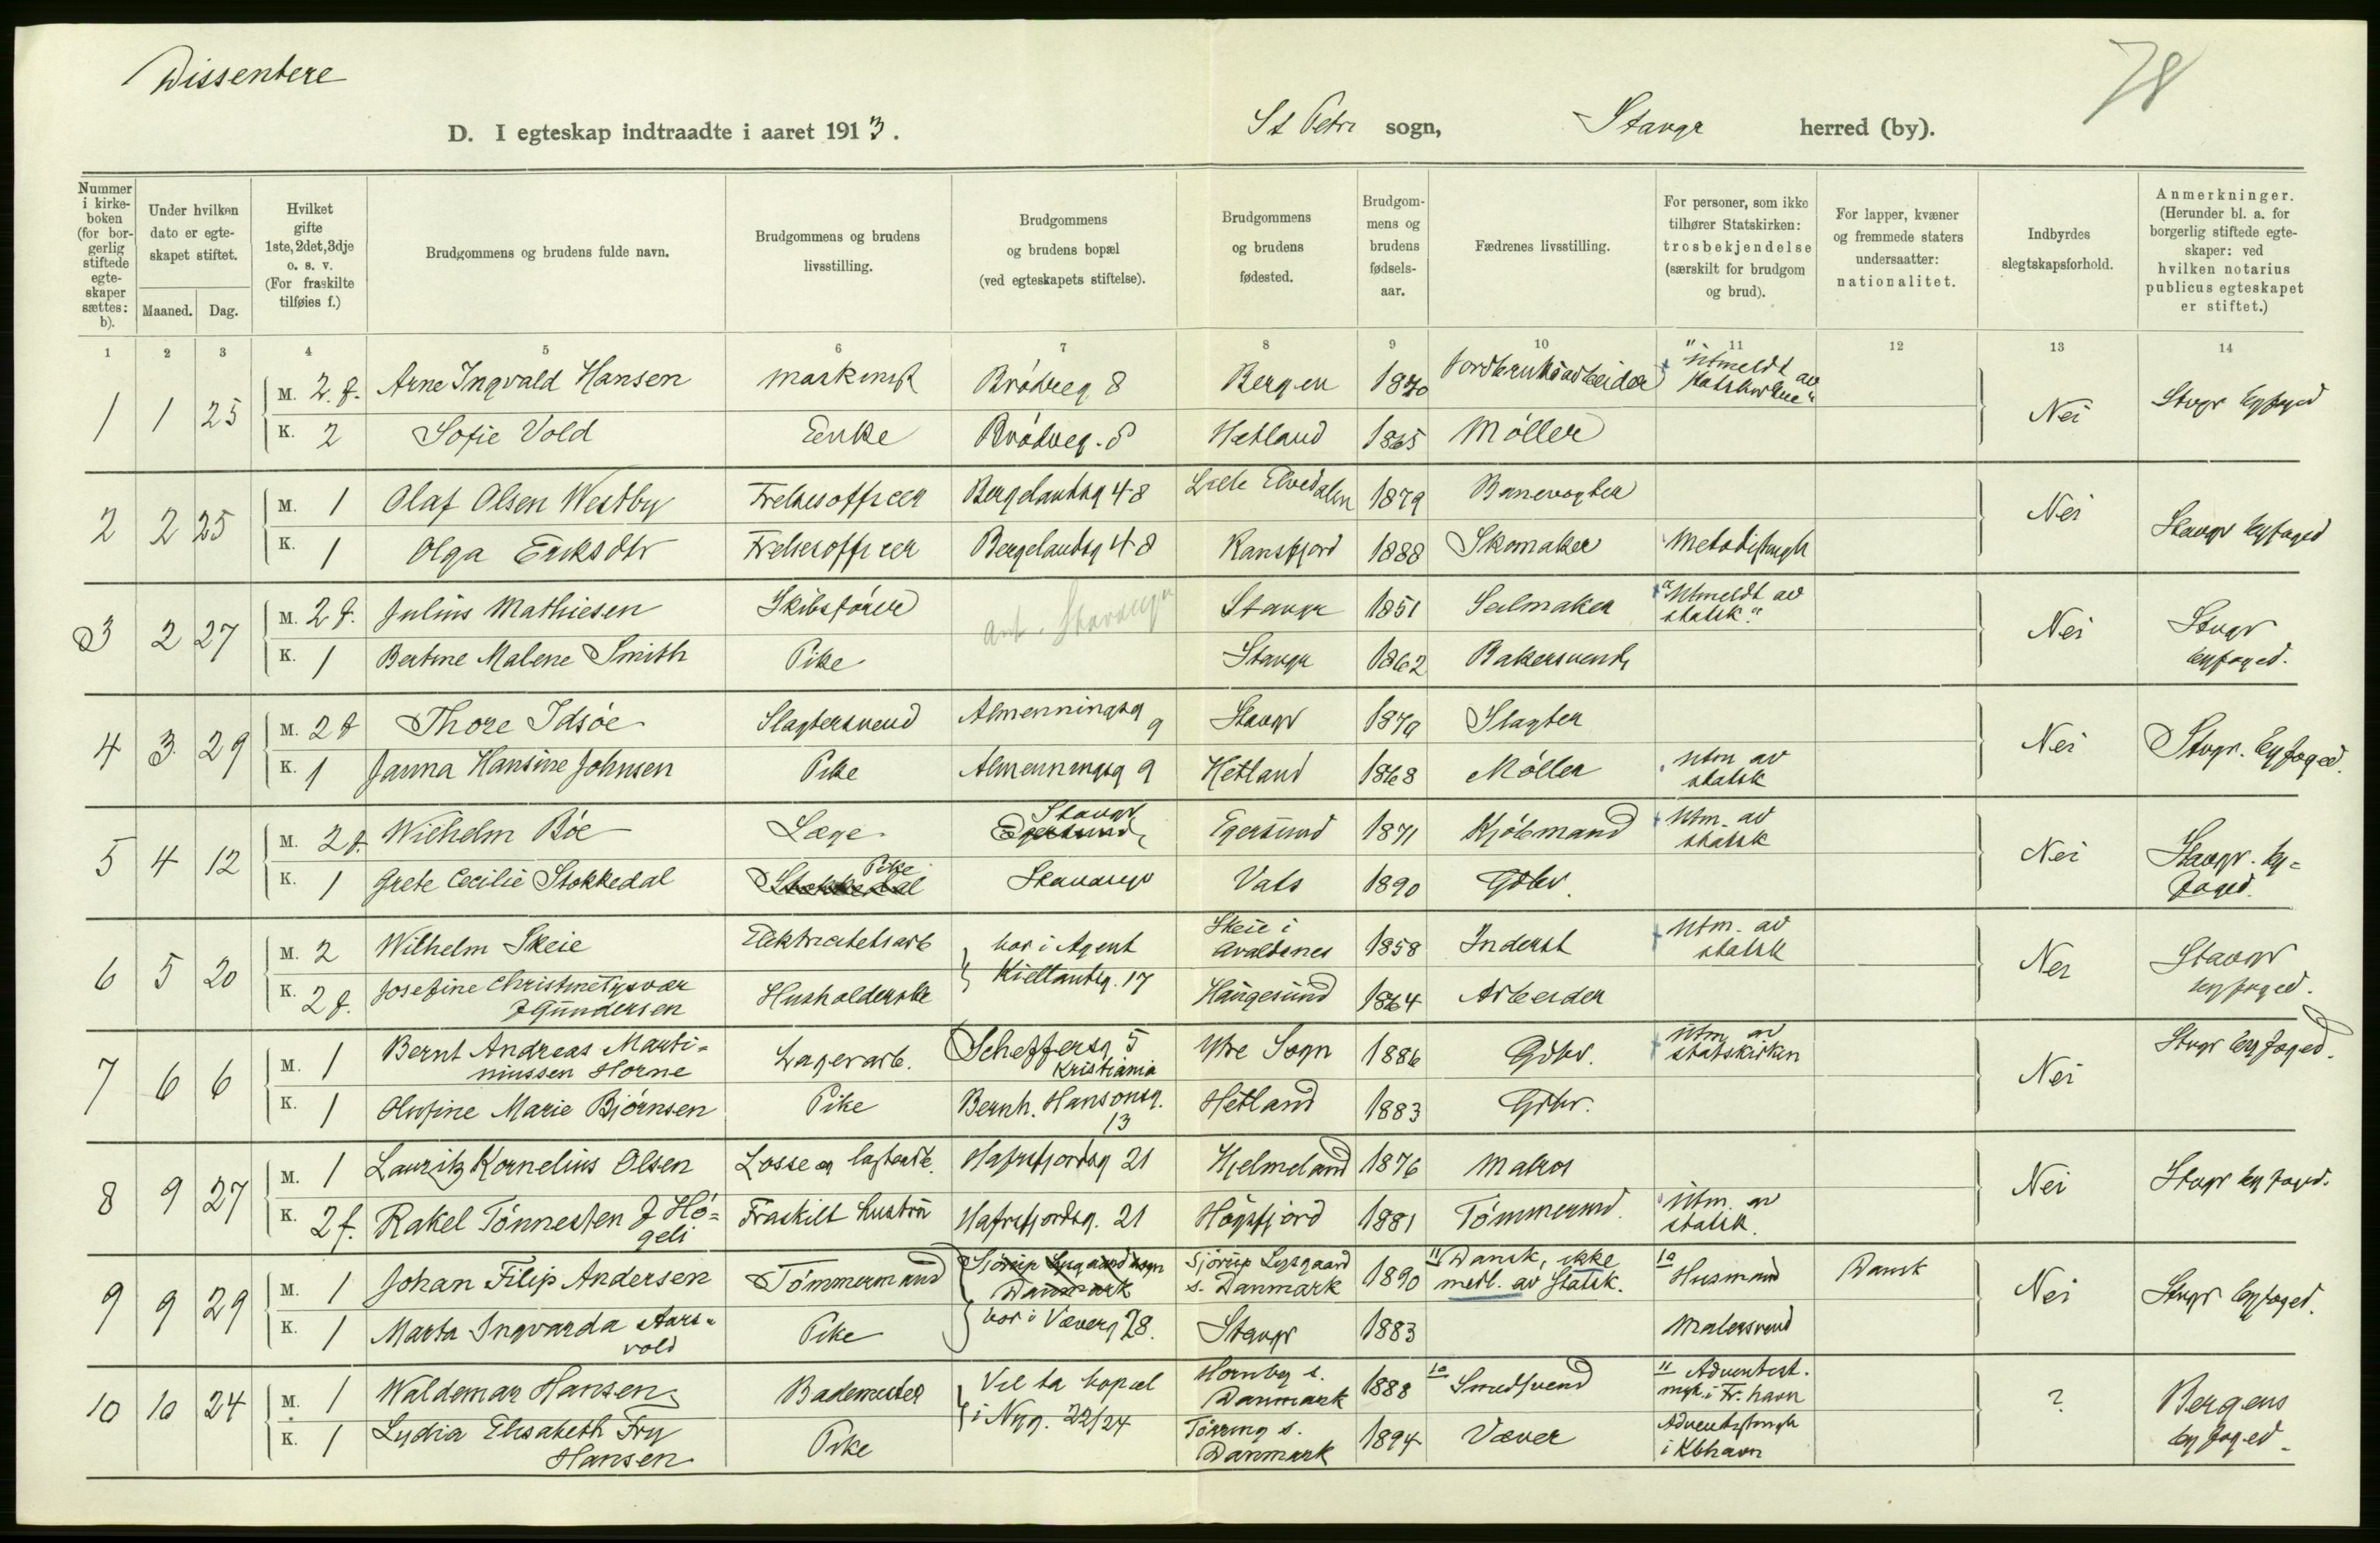 Dissentere
78
D. I egteskap indtraadte i aaret 1913.
St Petri sogn, Stavgr herred (by).
Nummer i kirkeboken (for borgerlig stiftede egteskaper sættes: b).
Under hvilken dato er egteskapet stiftet.
Maaned. Dag.
Hvilket gifte 1ste, 2det, 3dje o. s. v. (For fraskilte tilføies f.)
Brudgommens og brudens fulde navn.
Brudgommens og brudens livsstilling.
Brudgommens og brudens bopæl (ved egteskapets stiftelse).
Brudgommens og brudens fødested.
Brudgommens og brudens fødselsaar.
Fædrenes livsstilling.
For personer, som ikke tilhører Statskirken: trosbekjendelse (særskilt for brudgom og brud).
For lapper, kvæner og fremmede staters undersaatter: nationalitet.
Indbyrdes slegtskapsforhold.
Anmerkninger. (Herunder bl. a. for borgerlig stiftede egteskaper: ved hvilken notarius publicus egteskapet er stiftet.)
1 2 3 4 5 6 7 8 9 10 11 12 13 14
1 1 25 M. 2. f. Arne Ingvald Hansen maskinist Brödreg 8 Bergen 1870 Jordbruksarbeider "Utmeldt av statskirken" Nei Stvgr byfoged
K. 2 Sofie Vold Enke Brödreg. 8 Hetland 1865 Möller
2 2 25 M. 1 Olaf Olsen Westby Frelsesofficer Bergelandsg 48 Lille Elvedalen 1879 Banevogter Nei Stavgr byfoged
K. 1 Olga Eriksdtr Frelsesofficer Bergelandsg 48 Ransfjord 1888 Skomaker Metodistmgh
3 2 27 M. 2 f. Julius Mathiesen Skibsförer ant. Stavanger Stavgr 1851 Seilmaker "Utmeldt av statsk." Nei Stvgr byfoged.
K. 1 Bertine Malene Smith Pike Stavgr 1862 Bakersvend
4 3 29 M. 2 f Thore Idsöe Slagtersvend Almenningsg 9 Stavgr 1879 Slagter Nei Stvgr. byfoged.
K. 1 Janna Hansine Johnsen Pike Almenningsg 9 Hetland 1868 Möller Utm av statsk
5 4 12 M. 2 f. Wilhelm Böe Læge Egersund Stavgr Egersund 1871 Kjöbmand Utm. av statsk Nei Stavgr. byfoged.
K. 1 Grete Cecilie Stokkedal Stokkedal Pike Stavanger Vats 1890 Gdbr.
6 5 20 M. 2 Wilhelm Skeie Elektricitetsarb bor i Agent Kiellandsg. 17 Skeie i Avaldsnes 1858 Inderst Utm. av statsk Nei Stavgr byfoged.
K. 2 f. Josefine Christine Tysvær f Gundersen Husholderske Haugesund 1864 Arbeider
7 6 6 M. 1 Bernt Andreas Martiniussen Horne Lagerarb. Scheffersg 5 Kristiania Ytre Sogn 1886 Gdbr. Utm av statskirken Nei Stvgr byfoged.
K. 1 Olufine Marie Björnsen Pike Bernh. Hansonsg. 13 Hetland 1883 Gdbr.
8 9 27 M. 1 Lauritz Kornelius Olsen Losse og lastearb. Hafrsfjordsg 21 Hjelmeland 1876 Matros Nei Stvgr byfoged.
K. 2 f. Rakel Tönnesen f Högeli Fraskilt hustru Hafrsfjordsg. 21 Högsfjord 1881 Tömmermd. Utm. av statsk.
9 9 29 M. 1 Johan Filip Andersen Tömmermand Sjörup Lysgaard sogn Danmark bor i Væverg 28. Sjörup Lysgaard s. Danmark 1890 11 Dansk, ikke medl. av Statsk. 10 Husmand Dansk Nei Stvgr byfoged.
K. 1 Marta Ingvarda Aarsvold Pike Stavgr 1883 Malersvend
10 10 24 M. 1 Waldemar Hansen Bademester Vil ta bopæl i Nyg. 22/24 Hornbæg s. Danmark 1888 10 Smedsvend 11 Adventist. mgh. i Fr. havn ? Bergens byfoged.
K. 1 Lydia Elisabeth Fry Hansen Pike Törring s. Danmark 1894 Væver Adventistmgh i Kbhavn